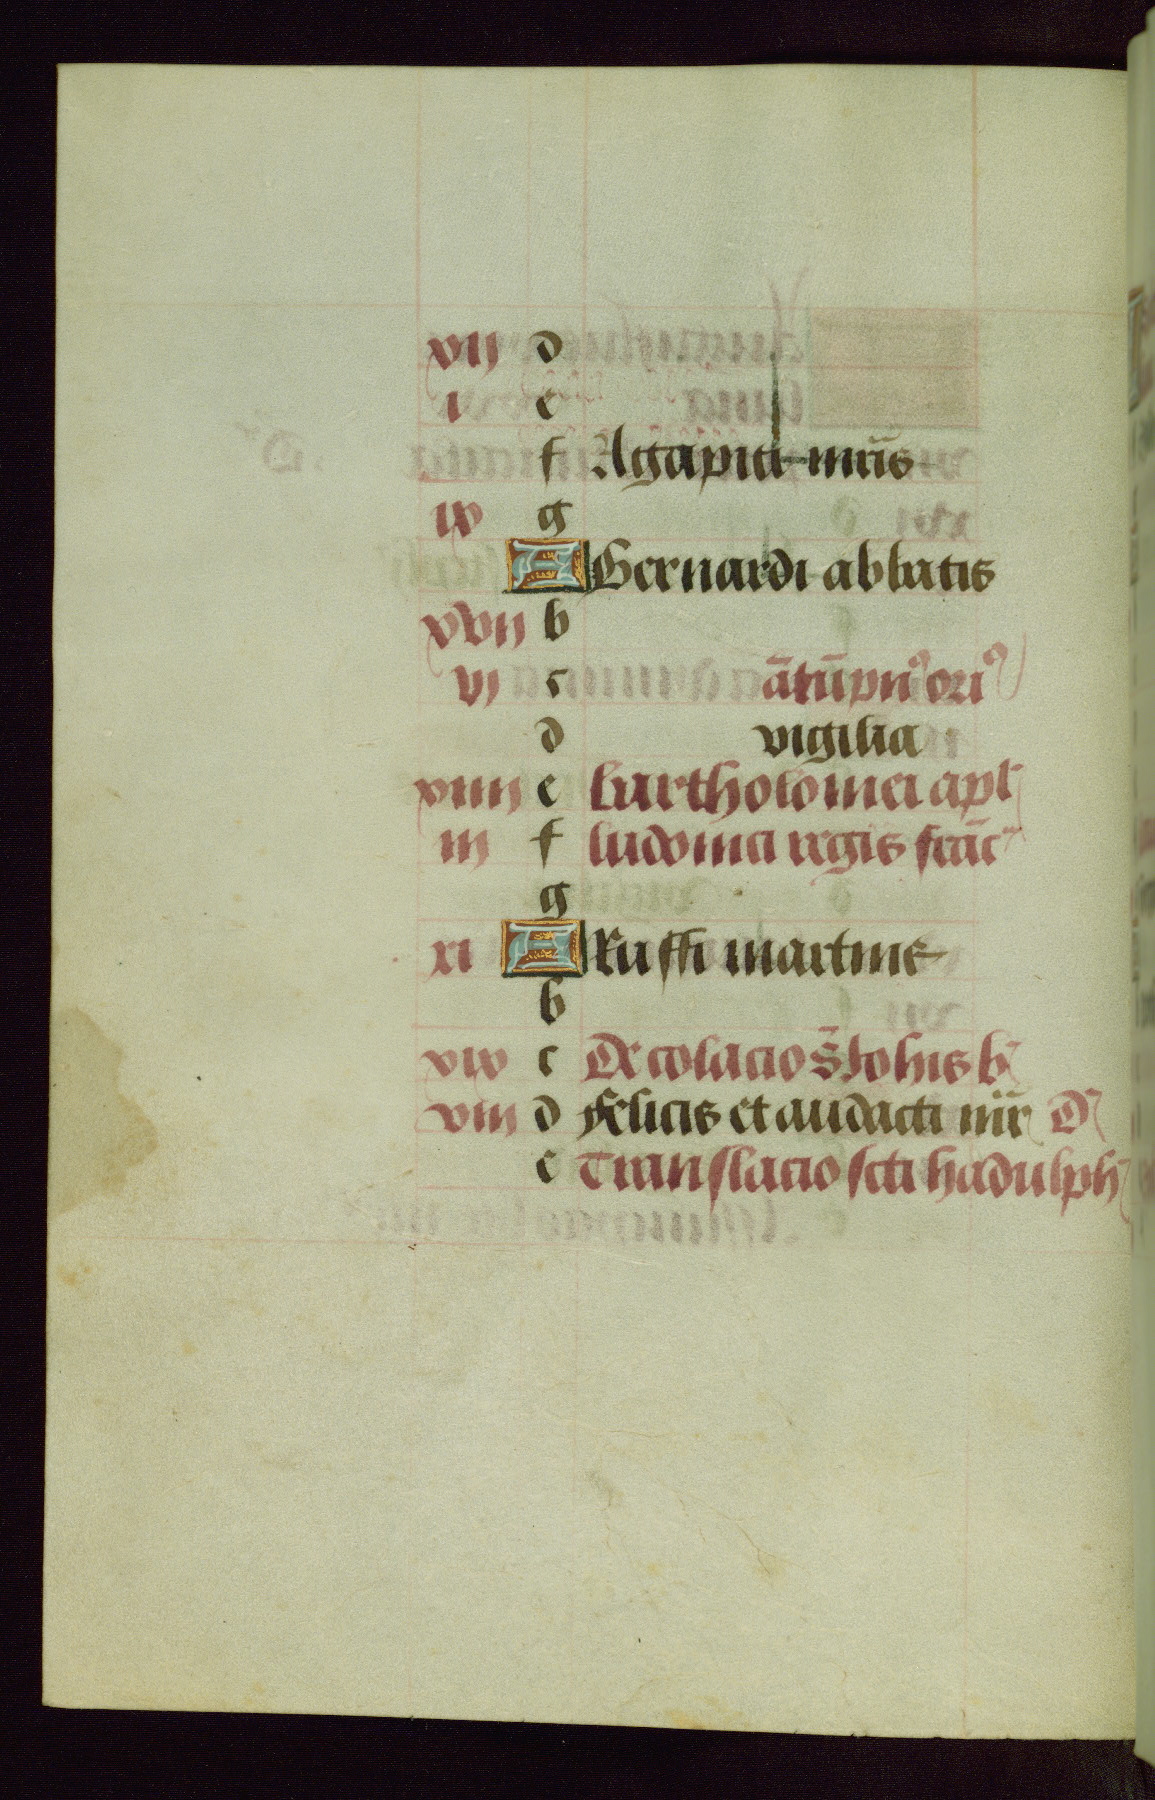 vij d
i e
f Agapiti mr̄is
ix g
A Bernardi abbatis
xvij b
vj c ātūpn⁹ ori⁹
d vigilia
xiiij e bartholomei apl'
iij f ludovici regis frāc'
g
xj A Ruffi martiris
b
xix c Decolacio s̄ Johis b'
viij d felicis et audacti mr̄ D'
e Translacio scti hadulph'